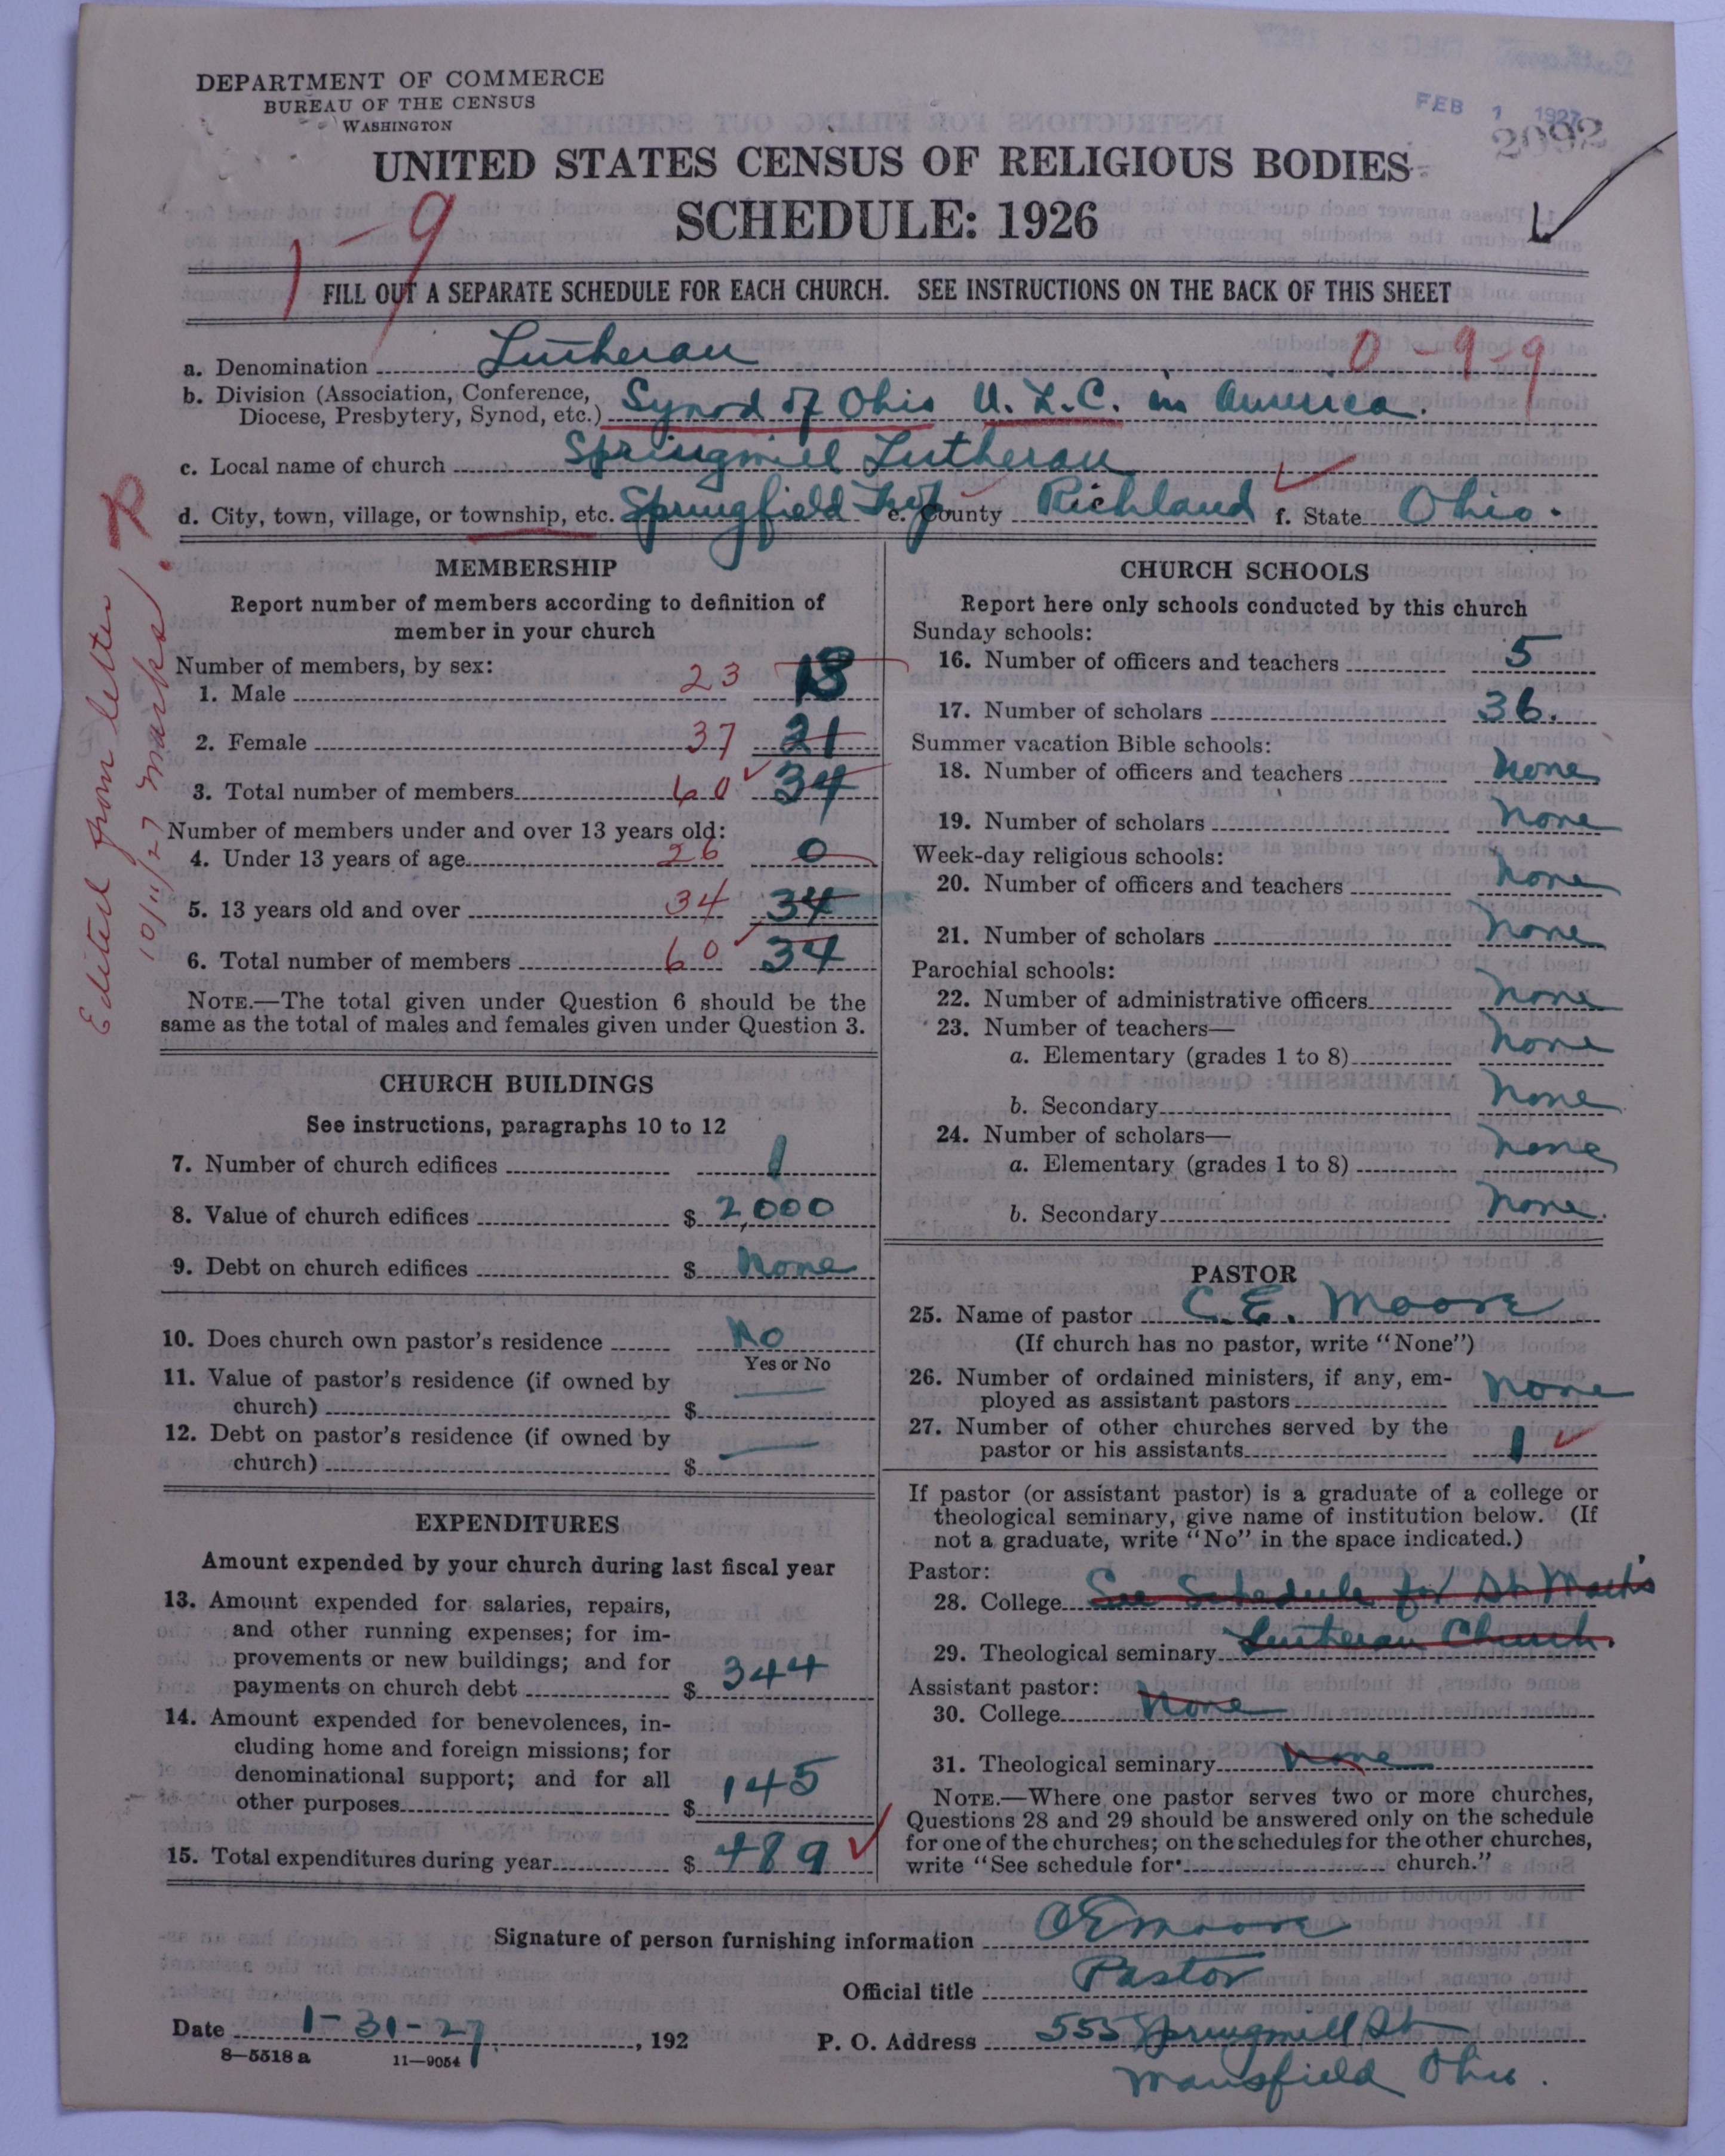 DEPARTMENT OF COMMERCE
BUREAU OF THE CENSUS
WASHINGTON
FEB 1 1927
2092
UNITED STATES CENSUS OF RELIGIOUS BODIES
SCHEDULE: 1926
1-9
FILL OUT A SEPARATE SCHEDULE FOR EACH CHURCH. SEE INSTRUCTIONS ON THE BACK OF THIS SHEET
0-9-9
a. Denomination Lutheran
b. Division (Association, Conference,
Diocese, Presbytery, Synod, etc.) Synod of Ohio U.L.C. in America.
c. Local name of church Springmill Lutheran
d. City, town, village, or township, etc. Springfield Twp. e. County Richland f. State Ohio.
Edited from letter
10/11/27 Marks.
MEMBERSHIP
Report number of members according to definition of
member in your church
Number of members, by sex:
1. Male 23 13
2. Female 37 21
3. Total number of members 60 34
Number of members under and over 13 years old:
4. Under 13 years of age 26 0
5. 13 years old and over 34 34
6. Total number of members 60 34
NOTE.—The total given under Question 6 should be the
same as the total of males and females given under Question 3.
CHURCH BUILDINGS
See instructions, paragraphs 10 to 12
7. Number of church edifices 1
8. Value of church edifices $ 2,000
9. Debt on church edifices $ None
10. Does church own pastor's residence No
Yes or No
11. Value of pastor's residence (if owned by
church) $ —
12. Debt on pastor's residence (if owned by
church) $ —
EXPENDITURES
Amount expended by your church during last fiscal year
13. Amount expended for salaries, repairs,
and other running expenses; for im-
provements or new buildings; and for
payments on church debt $ 344
14. Amount expended for benevolences, in-
cluding home and foreign missions; for
denominational support; and for all
other purposes $ 145
15. Total expenditures during year $ 489
CHURCH SCHOOLS
Report here only schools conducted by this church
Sunday schools:
16. Number of officers and teachers 5
17. Number of scholars 36.
Summer vacation Bible schools:
18. Number of officers and teachers None
19. Number of scholars None
Week-day religious schools:
20. Number of officers and teachers None
21. Number of scholars None
Parochial schools:
22. Number of administrative officers None
23. Number of teachers—
a. Elementary (grades 1 to 8) None
b. Secondary None
24. Number of scholars—
a. Elementary (grades 1 to 8) None
b. Secondary None.
PASTOR
25. Name of pastor C.E. Moore
(If church has no pastor, write "None")
26. Number of ordained ministers, if any, em-
ployed as assistant pastors None
27. Number of other churches served by the
pastor or his assistants 1
If pastor (or assistant pastor) is a graduate of a college or
theological seminary, give name of institution below. (If
not a graduate, write "No" in the space indicated.)
Pastor:
28. College See Schedule for St Mark's
29. Theological seminary Lutheran Church.
Assistant pastor:
30. College None
31. Theological seminary None
NOTE.—Where one pastor serves two or more churches,
Questions 28 and 29 should be answered only on the schedule
for one of the churches; on the schedules for the other churches,
write "See schedule for church."
Signature of person furnishing information CE Moore
Official title Pastor
Date 1-31-27, 192 P. O. Address 555 Springmill St
Mansfield Ohio.
8-5518 a 11-9054